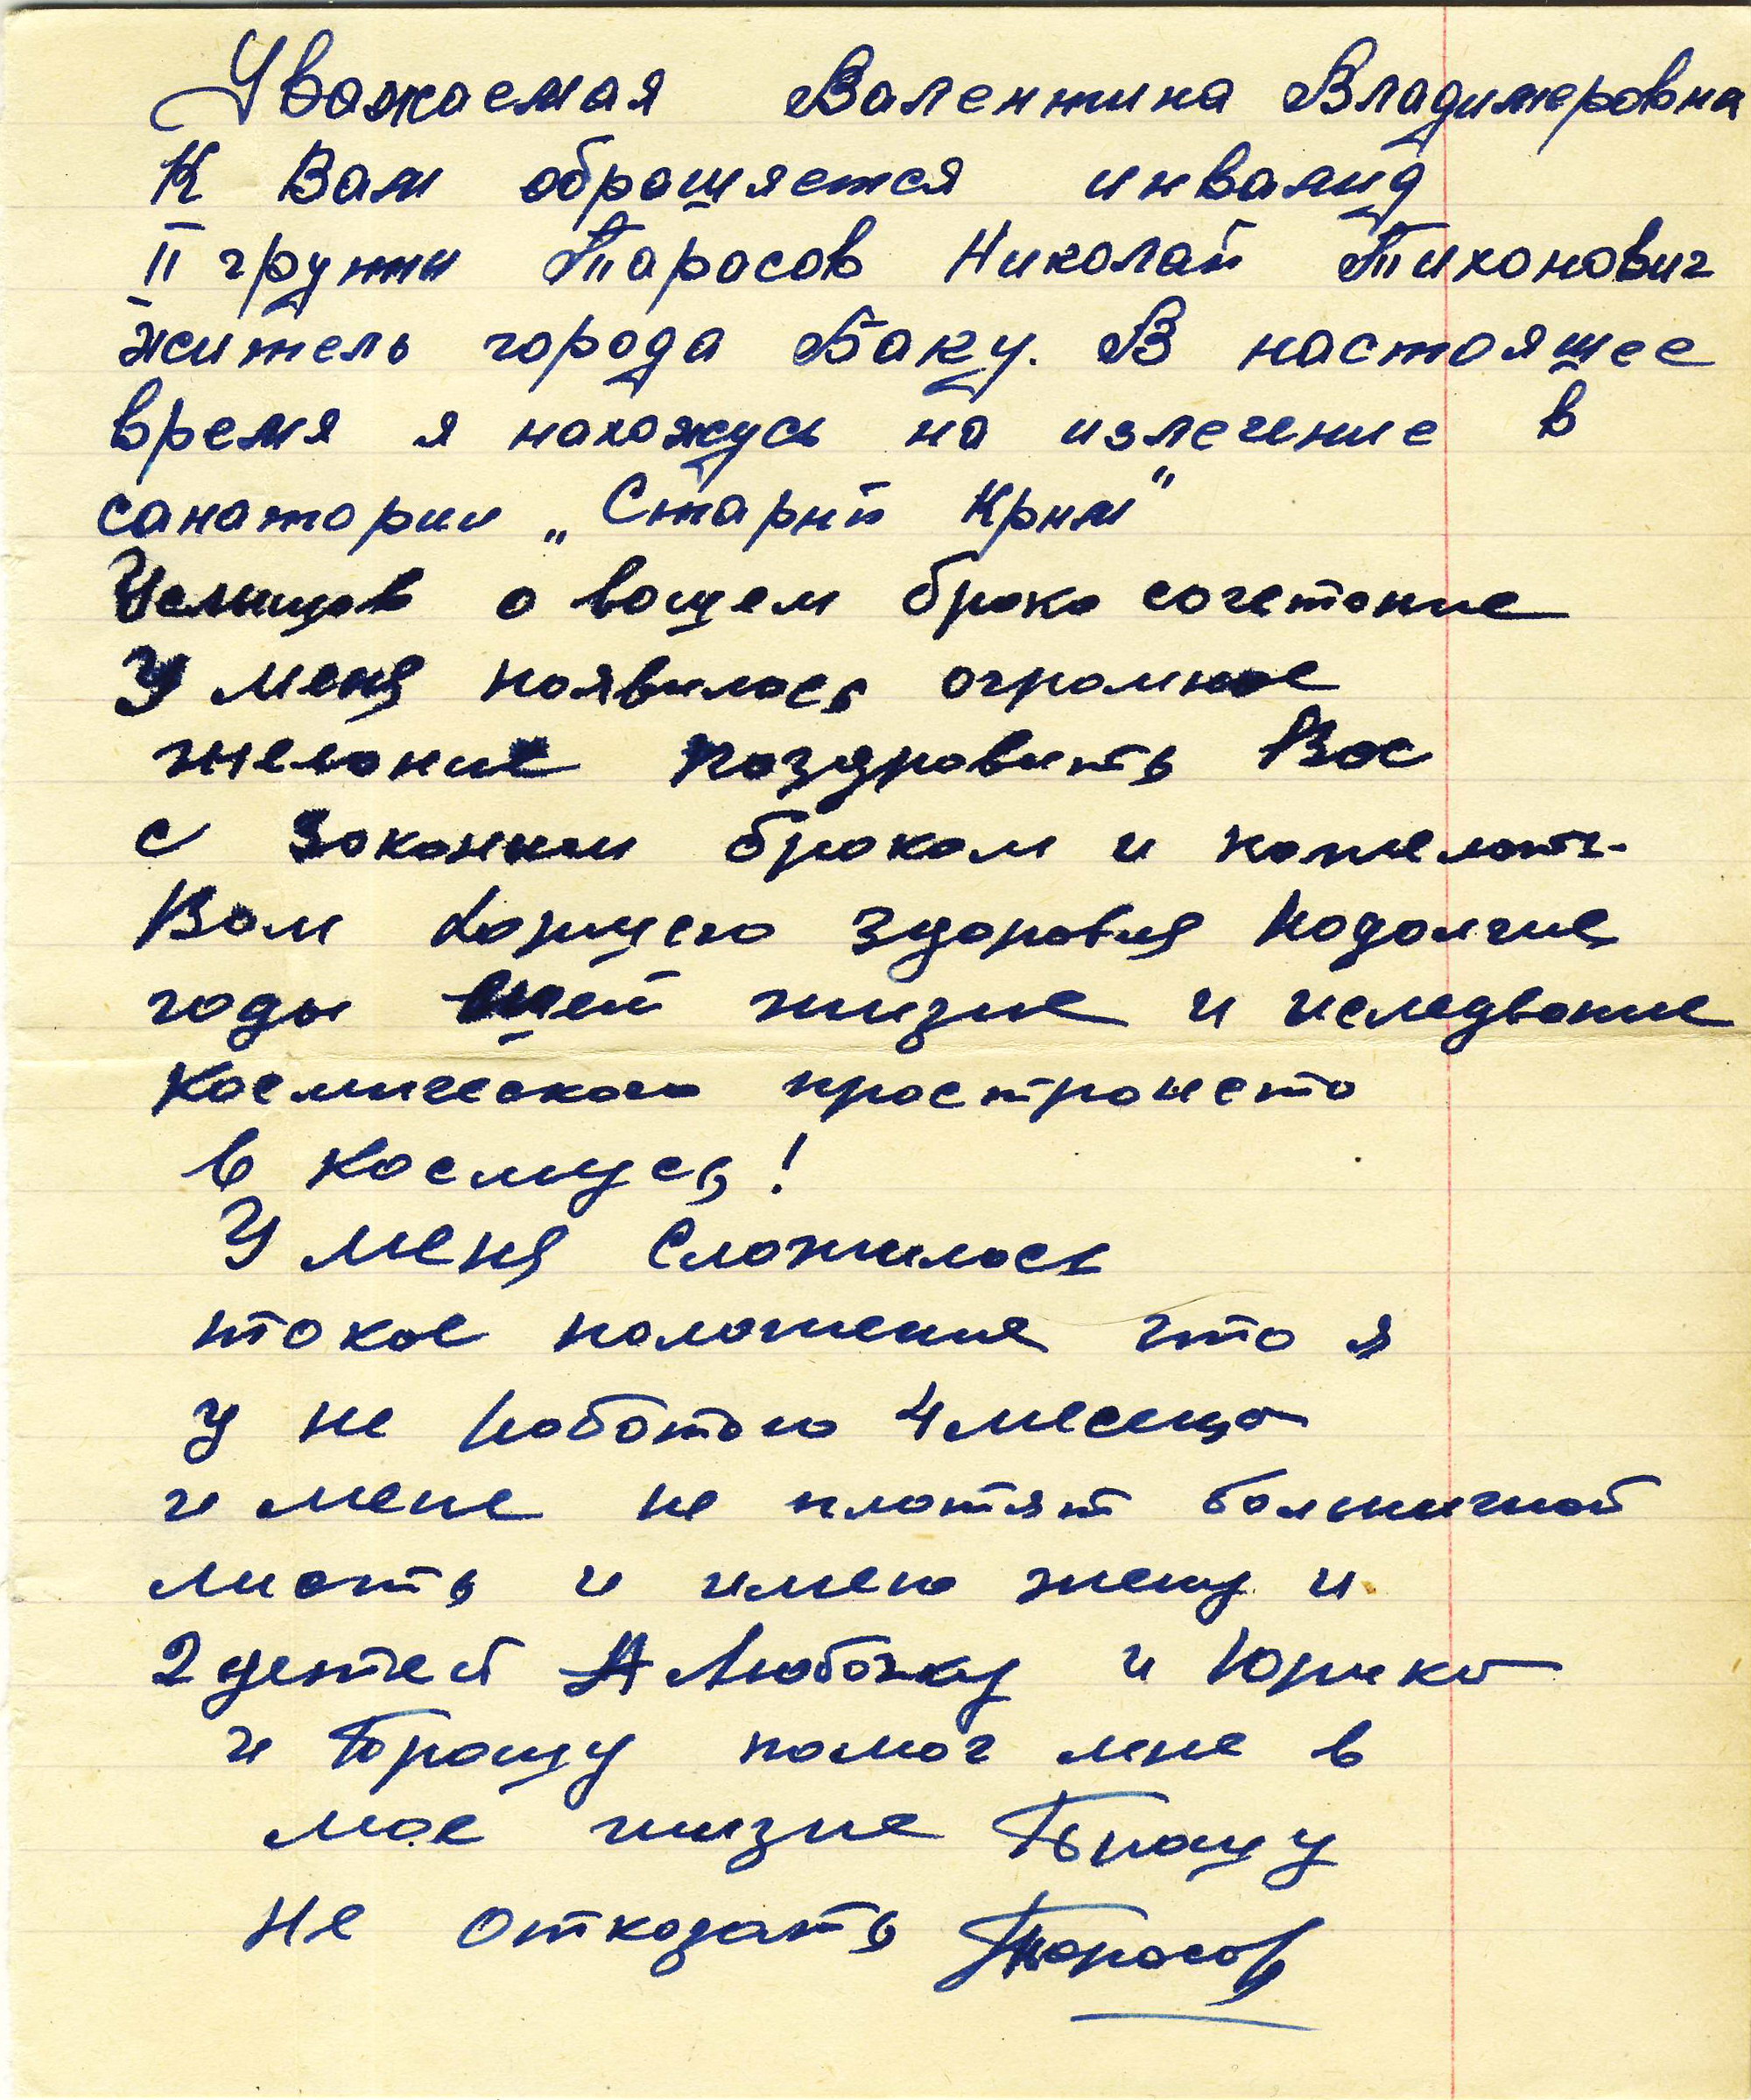 Уважаемая Валентина Владимеровна
К Вам обращяется инвалид
II группы Тарасов Николай Тихонович
житель города Баку. В настоящее
время я нахожусь на излечение в
санатории „Старый Крым"
Услышов о вашем брака сочетание
У меня появилось огромное
желание поздравить Вас
с законным браком и пожелать
Вам хорщего здоровья надолгие
годы вшей жизне и иследвоние
Космического простронсто
в космусь!
У меня сложилось
токое положение что я
у не работаю 4 месеца
и мене не плотят болничной
листь и имею жену и
2 детей Любочку и Юрика
и Прошу помоч мне в
мое жизне Прошу
не отказать Тарасов